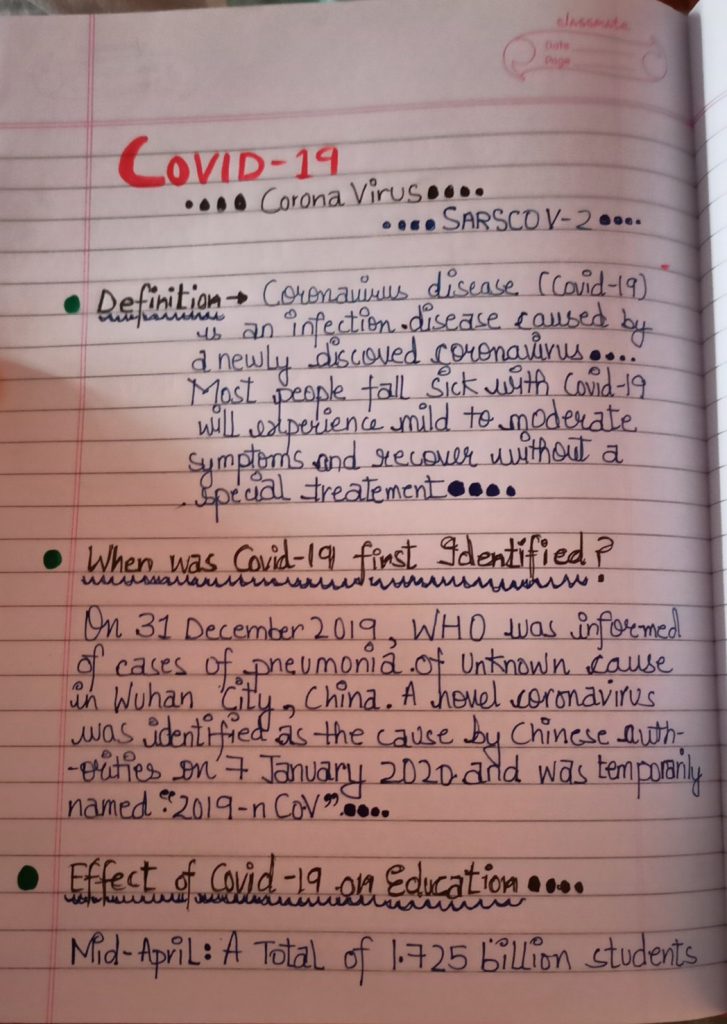 classmate
Date
Page
COVID-19
.... Corona Virus....
.... SARSCOV-2....
Definition → Coronavirus disease (Covid-19)
is an infection.disease caused by
a newly discoved coronavirus....
Most people fall sick with Covid-19
will experience mild to moderate
symptoms and recover without a
special treatement....
When was Covid-19 first Identified?
On 31 December 2019, WHO was informed
of cases of pneumonia of unknown cause
in Wuhan City, China. A novel coronavirus
was identified as the cause by Chinese auth-
-orities on 7 January 2020 and was temporarily
named "2019-n CoV"....
Effect of Covid-19 on Education....
Mid-April: A Total of 1.725 billion students